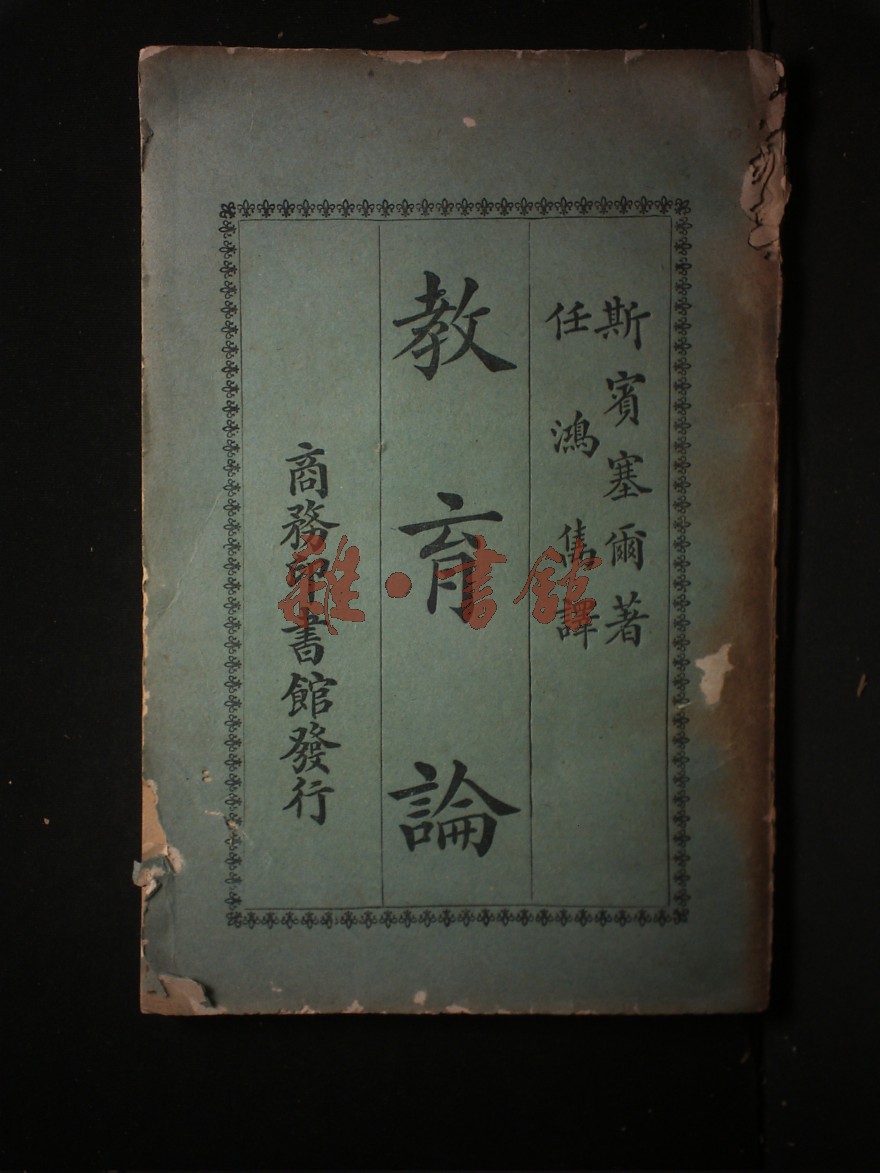 斯賓塞爾著
任鴻雋譯
教育論
商務印書館發行
雜·書館